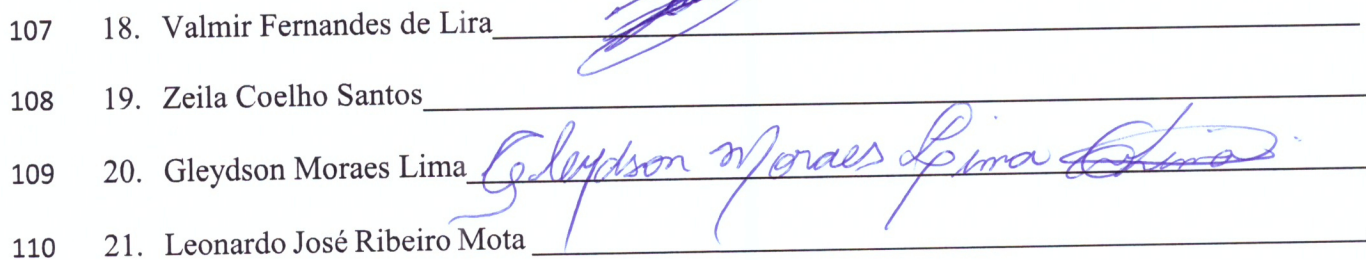 107 18. Valmir Fernandes de Lira
108 19. Zeila Coelho Santos
109 20. Gleydson Moraes Lima Gleydson Moraes Lima
110 21. Leonardo José Ribeiro Mota